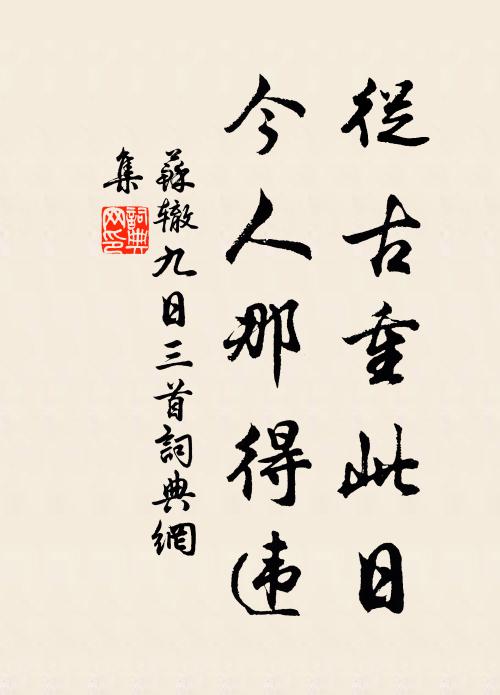 從古重此日
今人那得违
蘇辙九日三首詞典網
集
詞典
网印